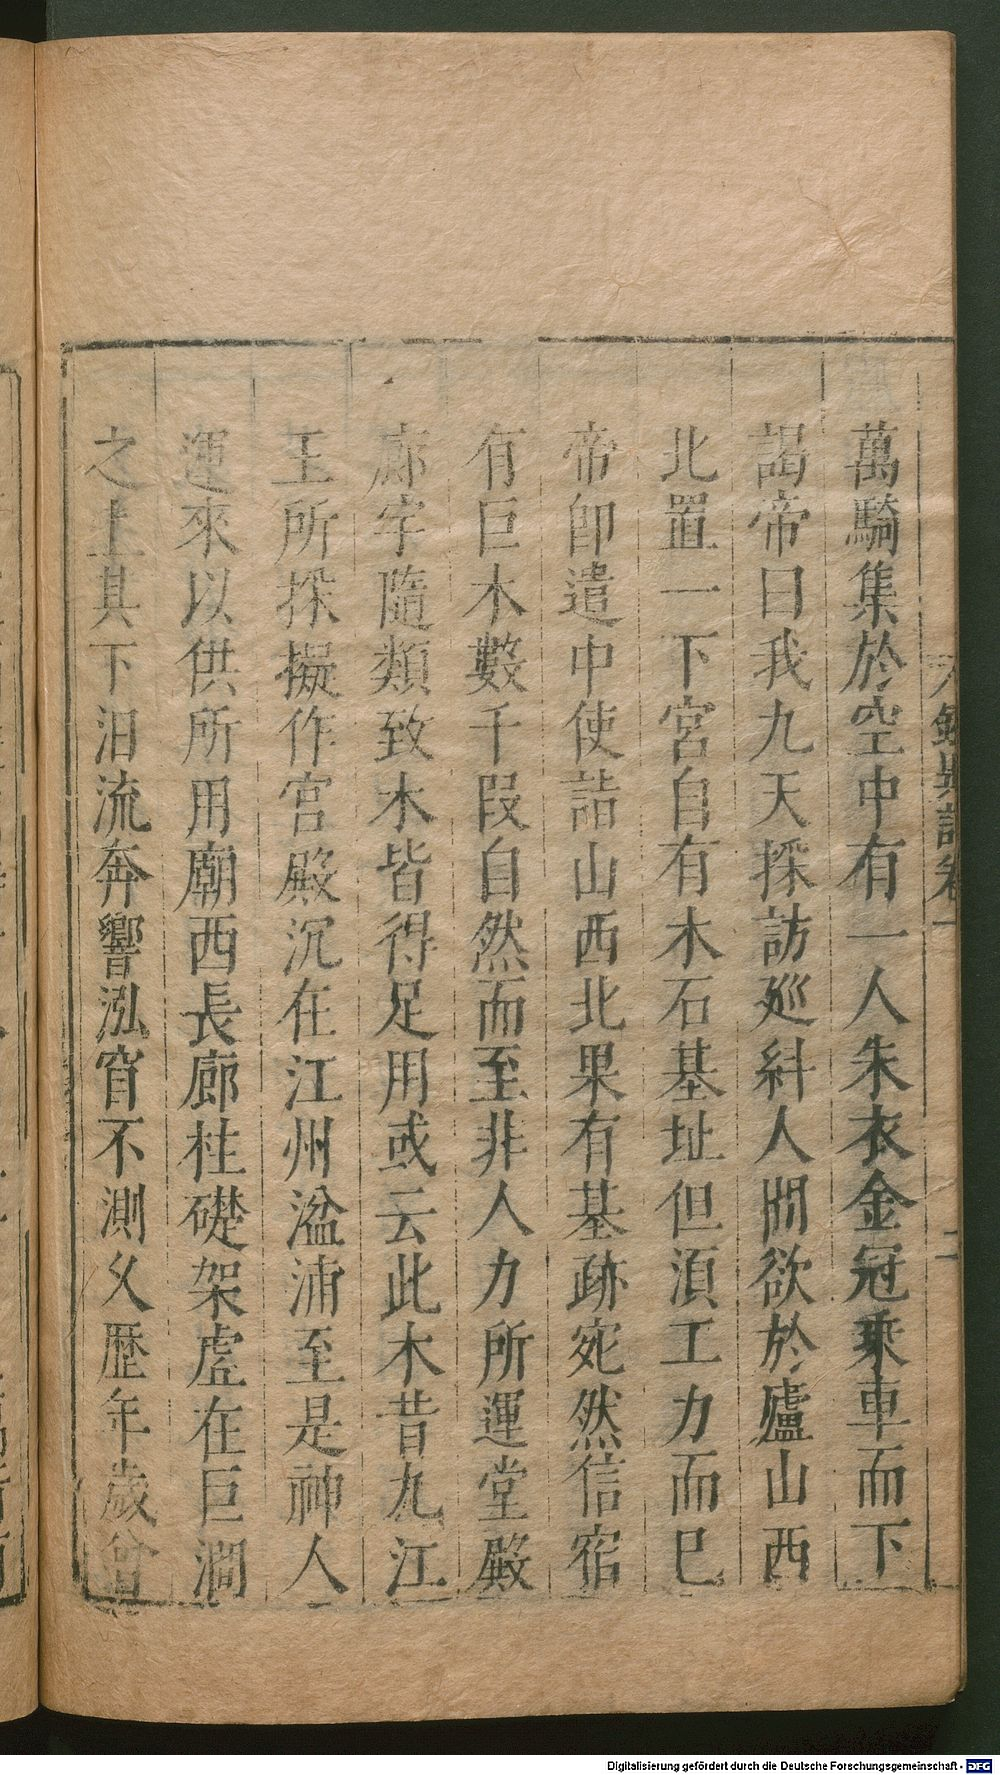 萬騎集於空中有一人朱衣金冠乗車而下
謁帝曰我九天採訪廵糾人間欲於廬山西
北置一下宮自有木石基址但湏工力而巳
帝即遣中使詣山西北果有基跡宛然信宿
有巨木數千段自然而至非人力所運堂殿
廊宇隨類致木皆得足用或云此木昔九江
王所採擬作宮殿沉在江州湓浦至是神人
運來以供所用廟西長廊柱礎架虛在巨澗
之上其下汨流奔響泓窅不測乆歴年歲曾
錄異記卷一
二
Digitalisierung gefördert durch die Deutsche Forschungsgemeinschaft - DFG